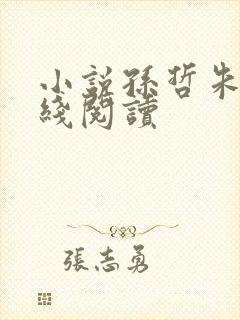 小說孫哲朱
綫閱讀
張志勇